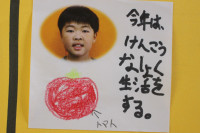 今年は、
けんこう
なしょく
生活を
する。
トマト